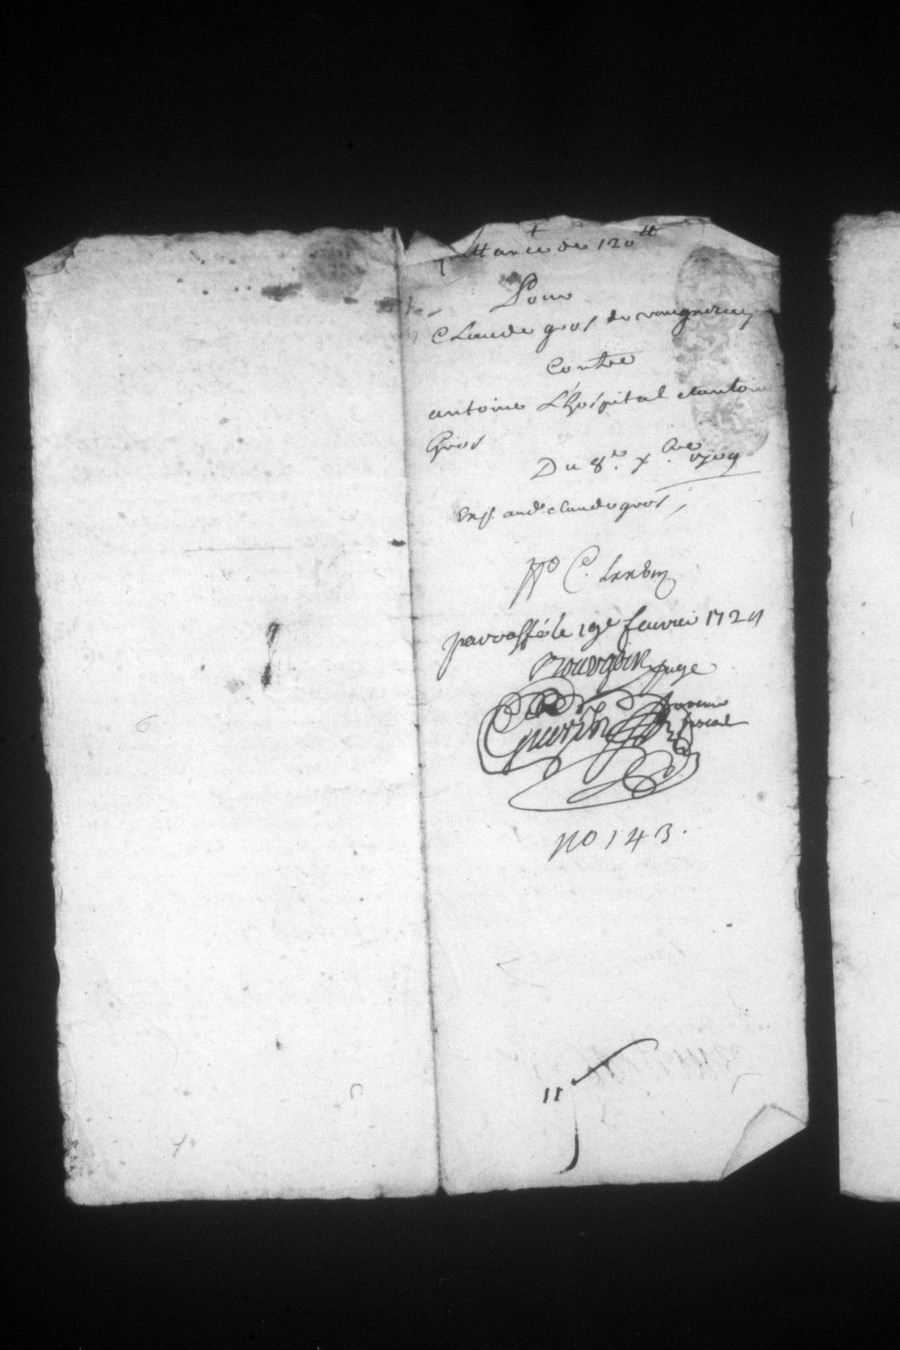 quittance de 120 tt
Pour
Claude gros de vaugneray
Contre
antoine L'hospital et antoine
Gros
Du 8e. xbre 1709
Exp. aud. claude gros,
C.
parraffé le 19e feuvrier 1729
Bourgoin juge
Guerin procureur
fiscal
no 143.
11